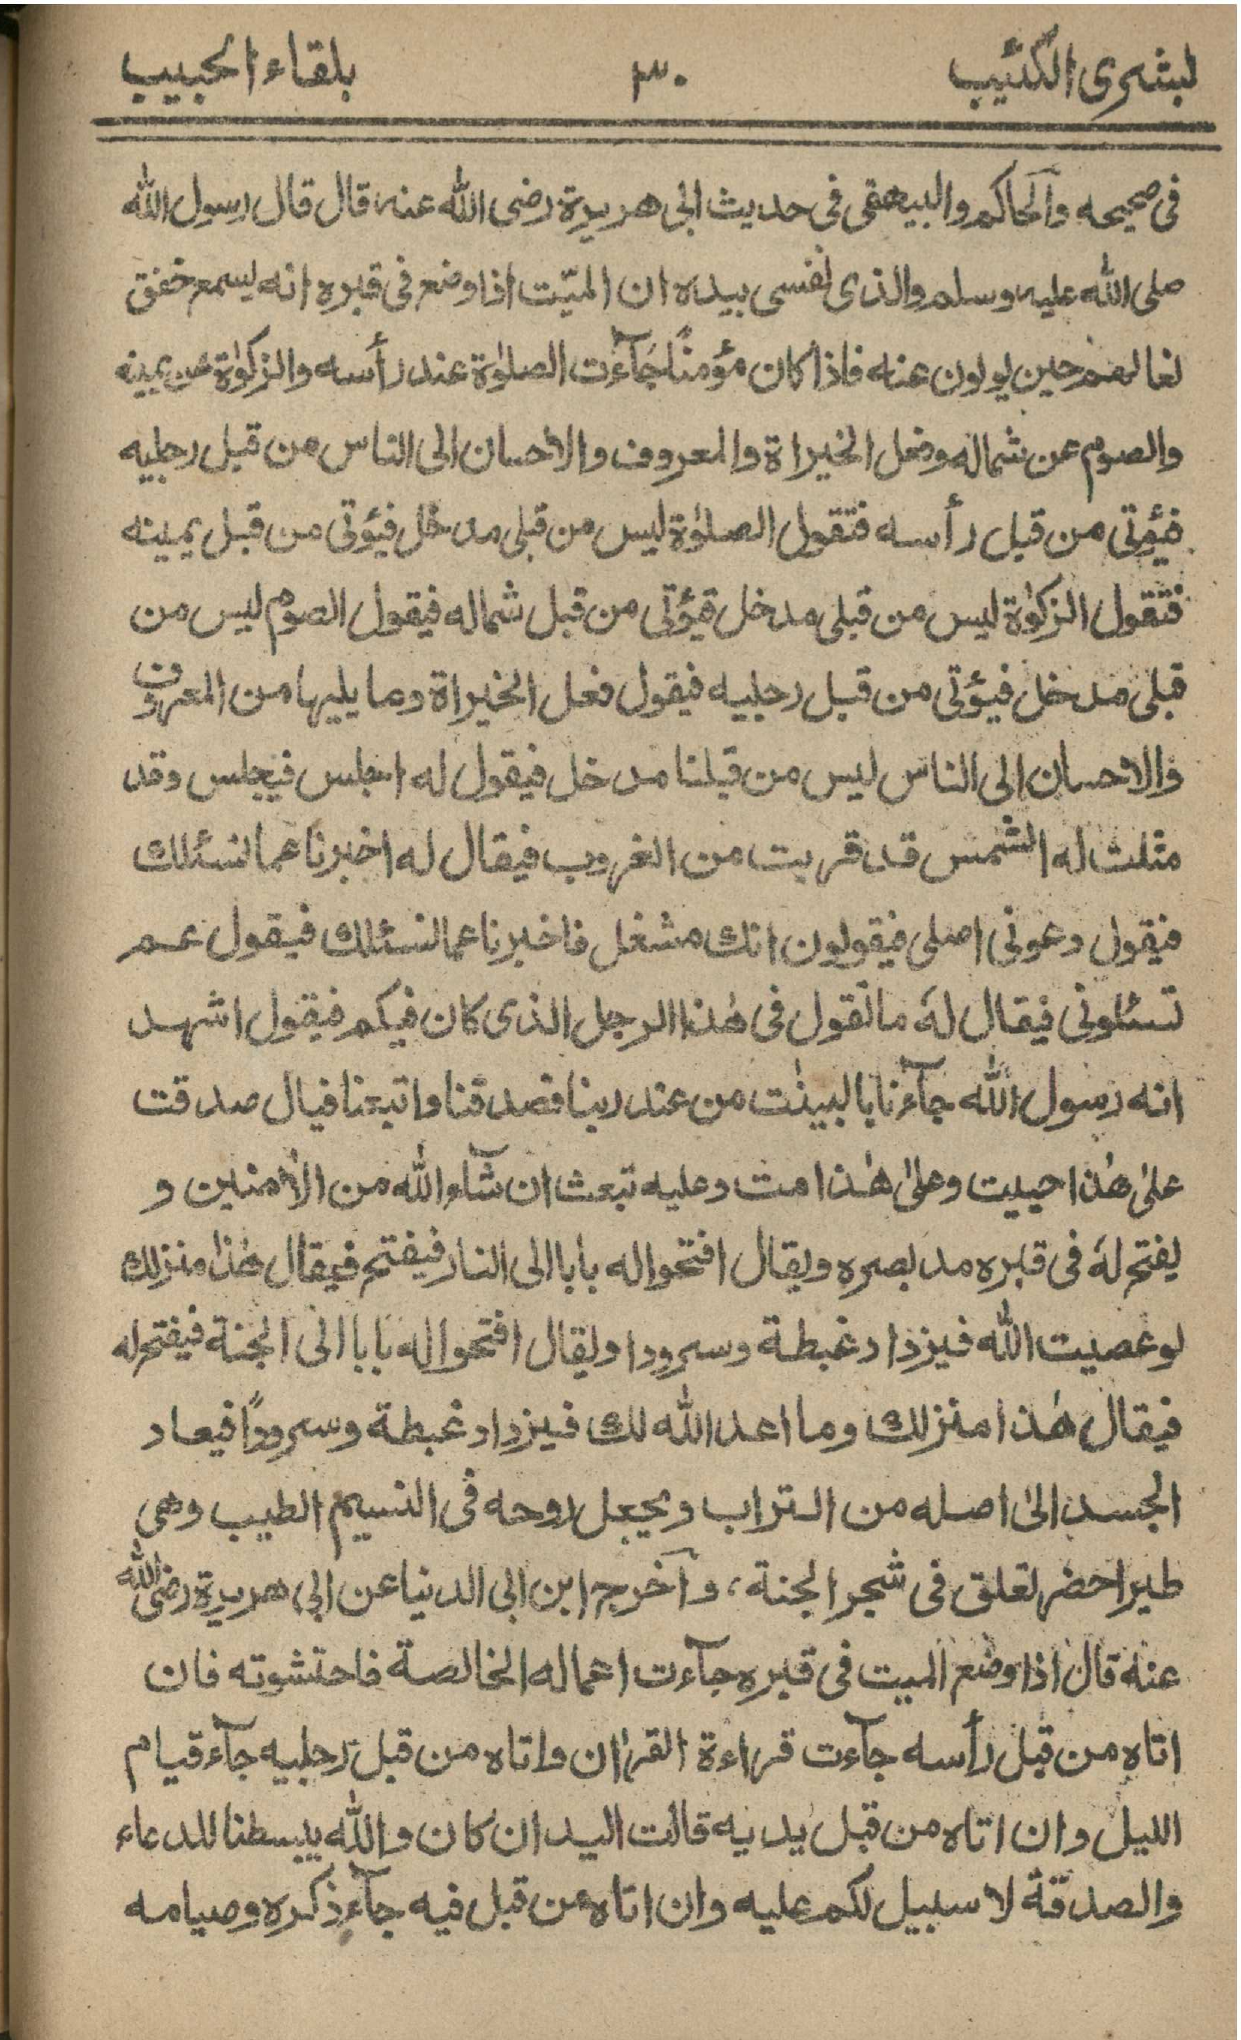 لبشرى الكئيب ٣٠ بلقاء الحبيب
فى صحيحه والحاكم والبيهقى فى حديث ابى هريرة رضى الله عنه قال قال رسول الله
صلى الله عليه وسلم والذى نفسى بيده ان الميّت اذا وضع فى قبره انه يسمع خفق
نعالهم حين يولون عنه فاذا كان مؤمنًا جآءت الصلوٰة عند رأسه والزكوٰة عن يمينه
والصوم عن شماله وفعل الخيراة والمعروف والاحسان الى الناس من قبل رجليه
فيؤتى من قبل رأسه فتقول الصلوٰة ليس من قبلى مدخل فيؤتى من قبل يمينه
فتقول الزكوٰة ليس من قبلى مدخل فيؤتى من قبل شماله فيقول الصوم ليس من
قبلى مدخل فيؤتى من قبل رجليه فيقول فعل الخيراة وما يليها من المعروف
والاحسان الى الناس ليس من قبلنا مدخل فيقول له اجلس فيجلس وقد
مثلث له الشمس قد قربت من الغروب فيقال له اخبرنا عما نسئلك
فيقول دعونى اصلى فيقولون انك مشغل فاخبرنا عما نسئلك فيقول عم
تسئلونى فيقال لهٗ ما تقول فى هٰذا الرجل الذى كان فيكم فيقول اشهد
انه رسول الله جآءنا بالبينٰت من عند ربنا فصدقنا واتبعنا فيال صدقت
علىٰ هٰذا حييت وعلىٰ هٰذا مت وعليه تبعث ان شآء الله من الاٰمنين و
يفتح لهٗ فى قبره مد بصره ويقال افتحوا له بابا الى النار فيفتح فيقال هٰذا منزلك
لو عصيت الله فيزداد غبطة وسرورا ويقال افتحوا له بابا الى الجنة فيفتح له
فيقال هٰذا منزلك وما اعد الله لك فيزداد غبطة وسرورًا فيعاد
الجسد الىٰ اصله من التراب ويجعل روحه فى النسيم الطيب وهى
طير احضر تعلق فى شجر الجنة، وآخرج ابن ابى الدنيا عن ابى هريرة رضى الله
عنه قال اذا وضع الميت فى قبره جآءت اعماله الخالصة فاحتشوته فان
اتاه من قبل رأسه جآءت قراءة القراٰن واتاه من قبل رجليه جآء قيام
الليل وان اتاه من قبل يديه قالت اليدان كان والله يبسطنا للدعاء
والصدقة لا سبيل لكم عليه وان اتاه من قبل فيه جآء ذكره وصيامه